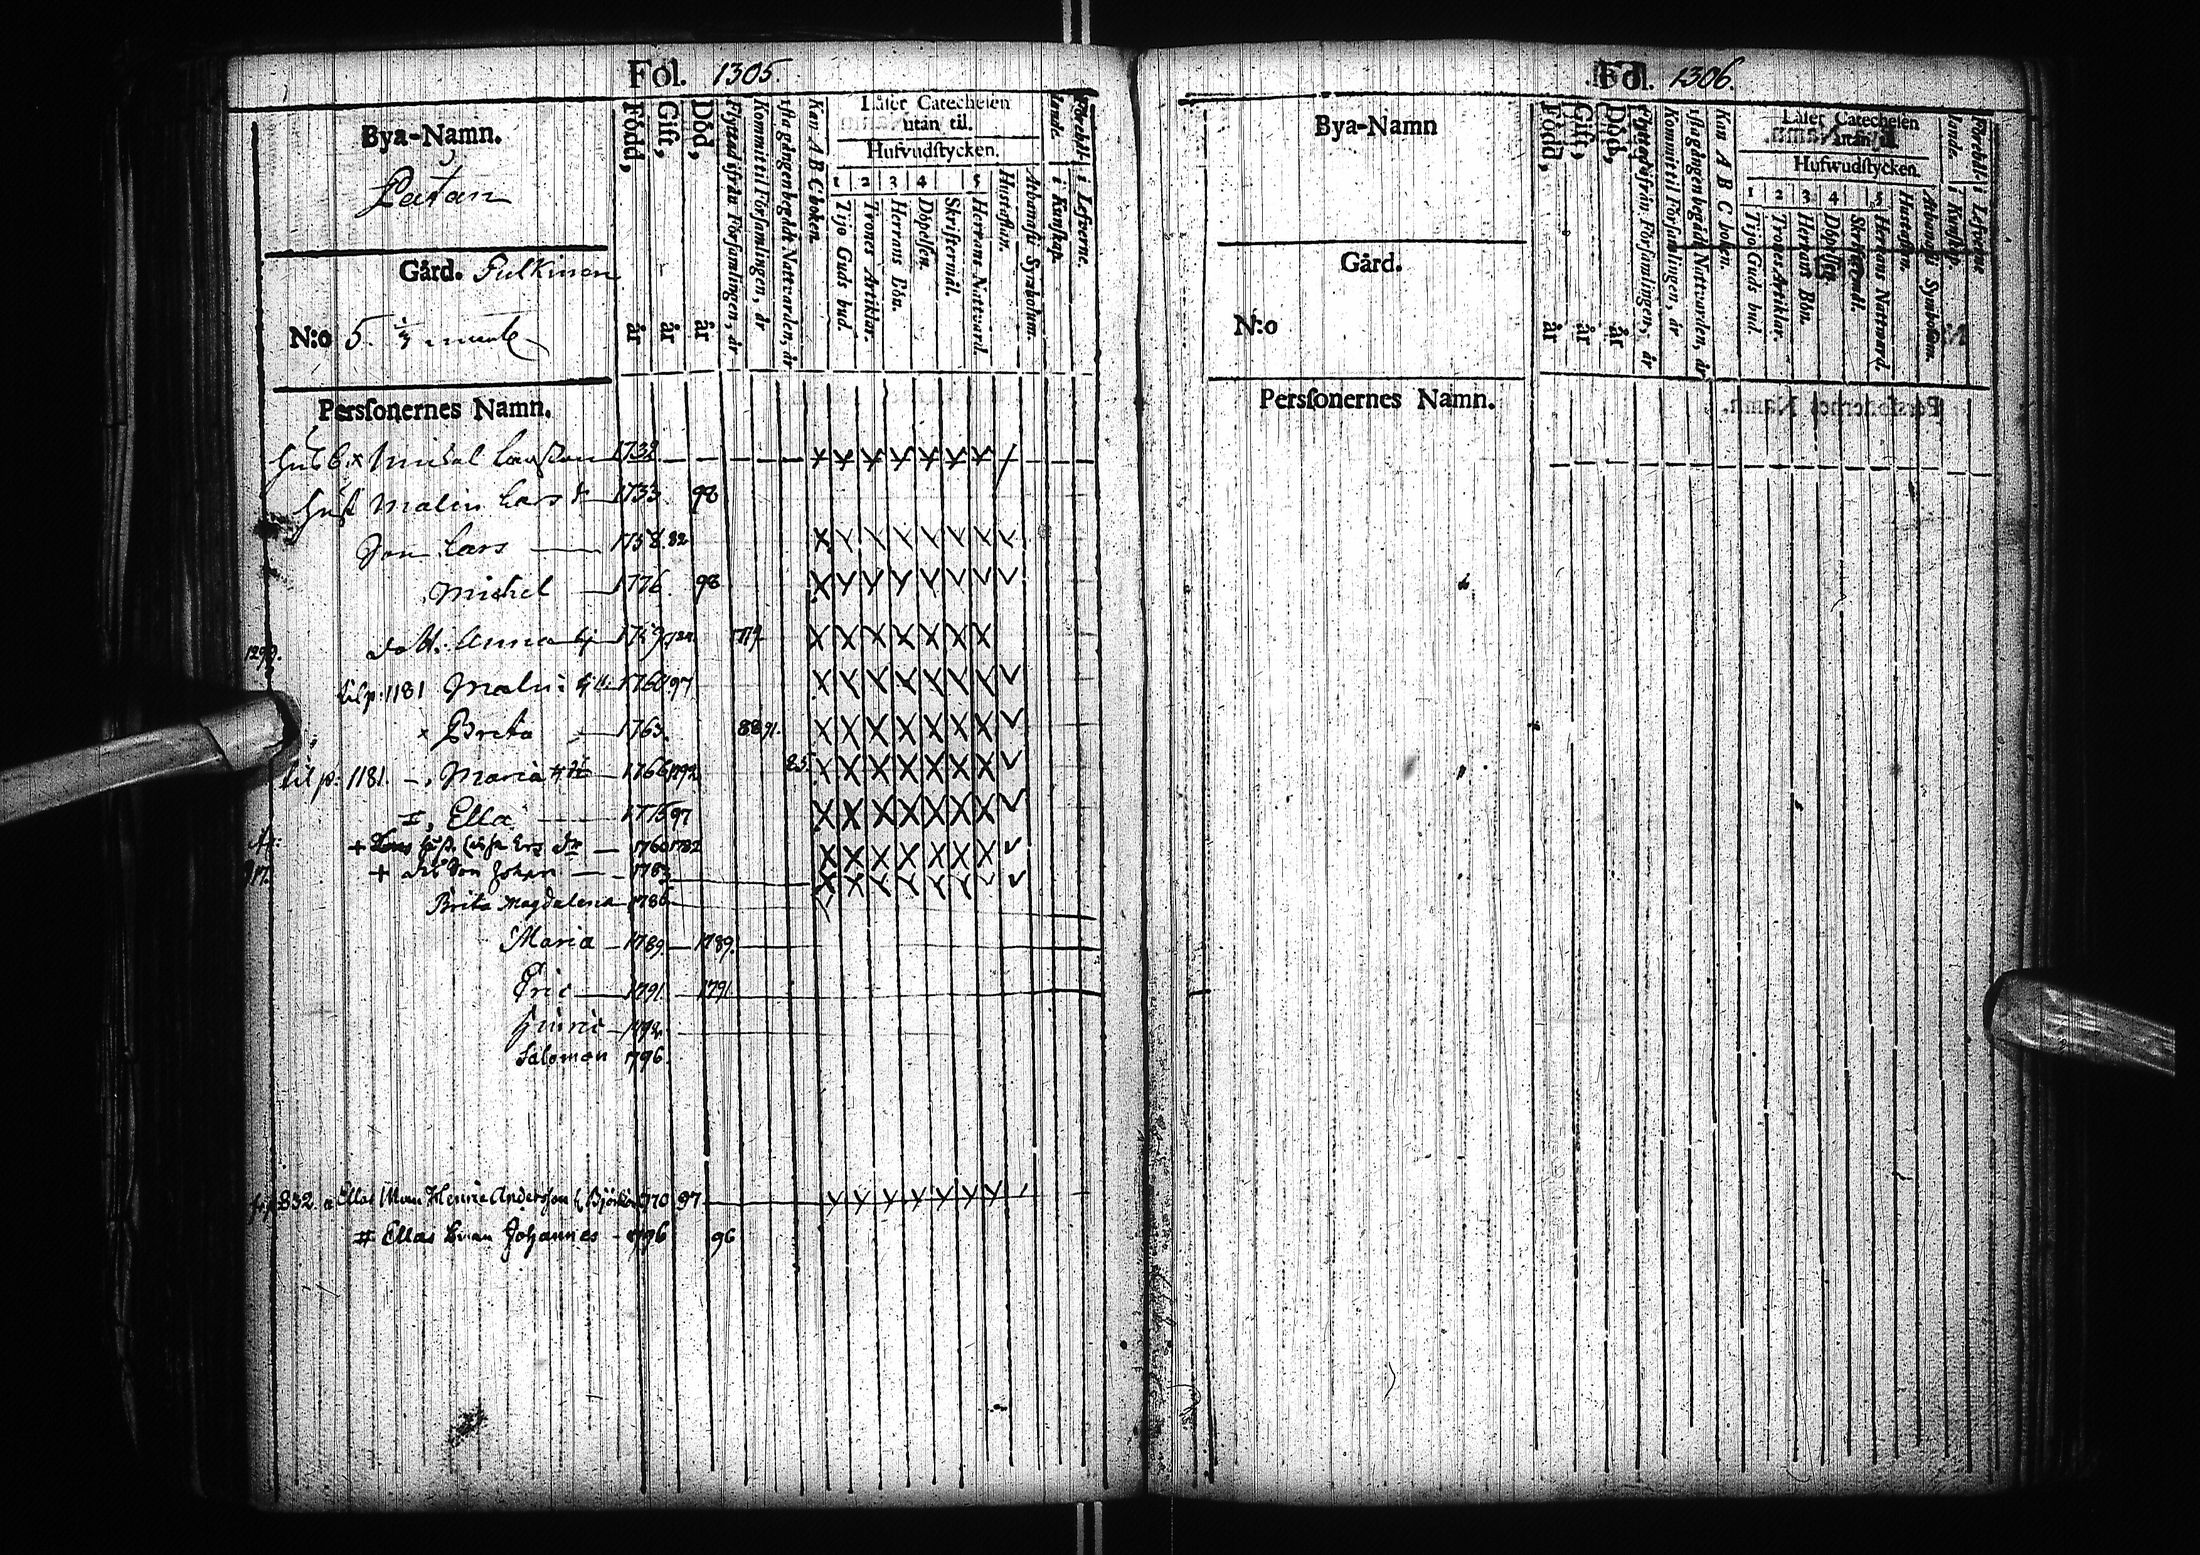 Fol. 1305
Bya-Namn.
Gård. Pulkinen
N:o 5.
Född, år
Gift, år
Död, år
Flyttad ifrån Församlingen, år
Kommit til Församlingen, år
1sta gången begådt Nattvarden, år
Kan A B C boken.
Läser Catechesen
utan til.
Hufvudstycken.
1 2 3 4 5
Tijo Guds bud.
Trones Artiklar.
Herrans Bön.
Döpelsen.
Skriftermål.
Herrans Nattvard.
Hustaflan.
Athanasii Symbolum.
i Kunskap.
i Lefverne.
Personernes Namn.
Husb. x Michel Larsson 1738
Hust Malin Lars dr 1733 98
Son Lars 1758 82
Michel 1776 98
1299. Dott. Anna 1759
til p: 1181 Malin 1760 97
x Brita 1763 88 91
til p: 1181. Maria 1766 1792 85
Ella 1775 97
+ Hust. Lisa Ers dr 1760 1782
+ Son Johan 1783
Brita Magdalena 1786
Maria 1789 1789
Eric 1791 1791
Hinric
Salomon 1796
832. Ellas Man Henric Andersson 1770 97
# Ellas Johannes 1796 96
Fol. 1306.
Bya-Namn
Gård.
N:o
Född, år
Gift, år
Död, år
Flyttad ifrån Församlingen, år
Kommit til Församlingen, år
1sta gången begådt Nattvarden, år
Kan A B C boken.
Läser Catechesen
utan til.
Hufwudstycken.
1 2 3 4 5
Tijo Guds bud.
Trones Artiklar.
Herrans Bön.
Döpelsen.
Skriftermål.
Herrans Nattward.
Hustaflan.
Athanasii Symbolum.
i Kunskap.
i Lefverne
Personernes Namn.